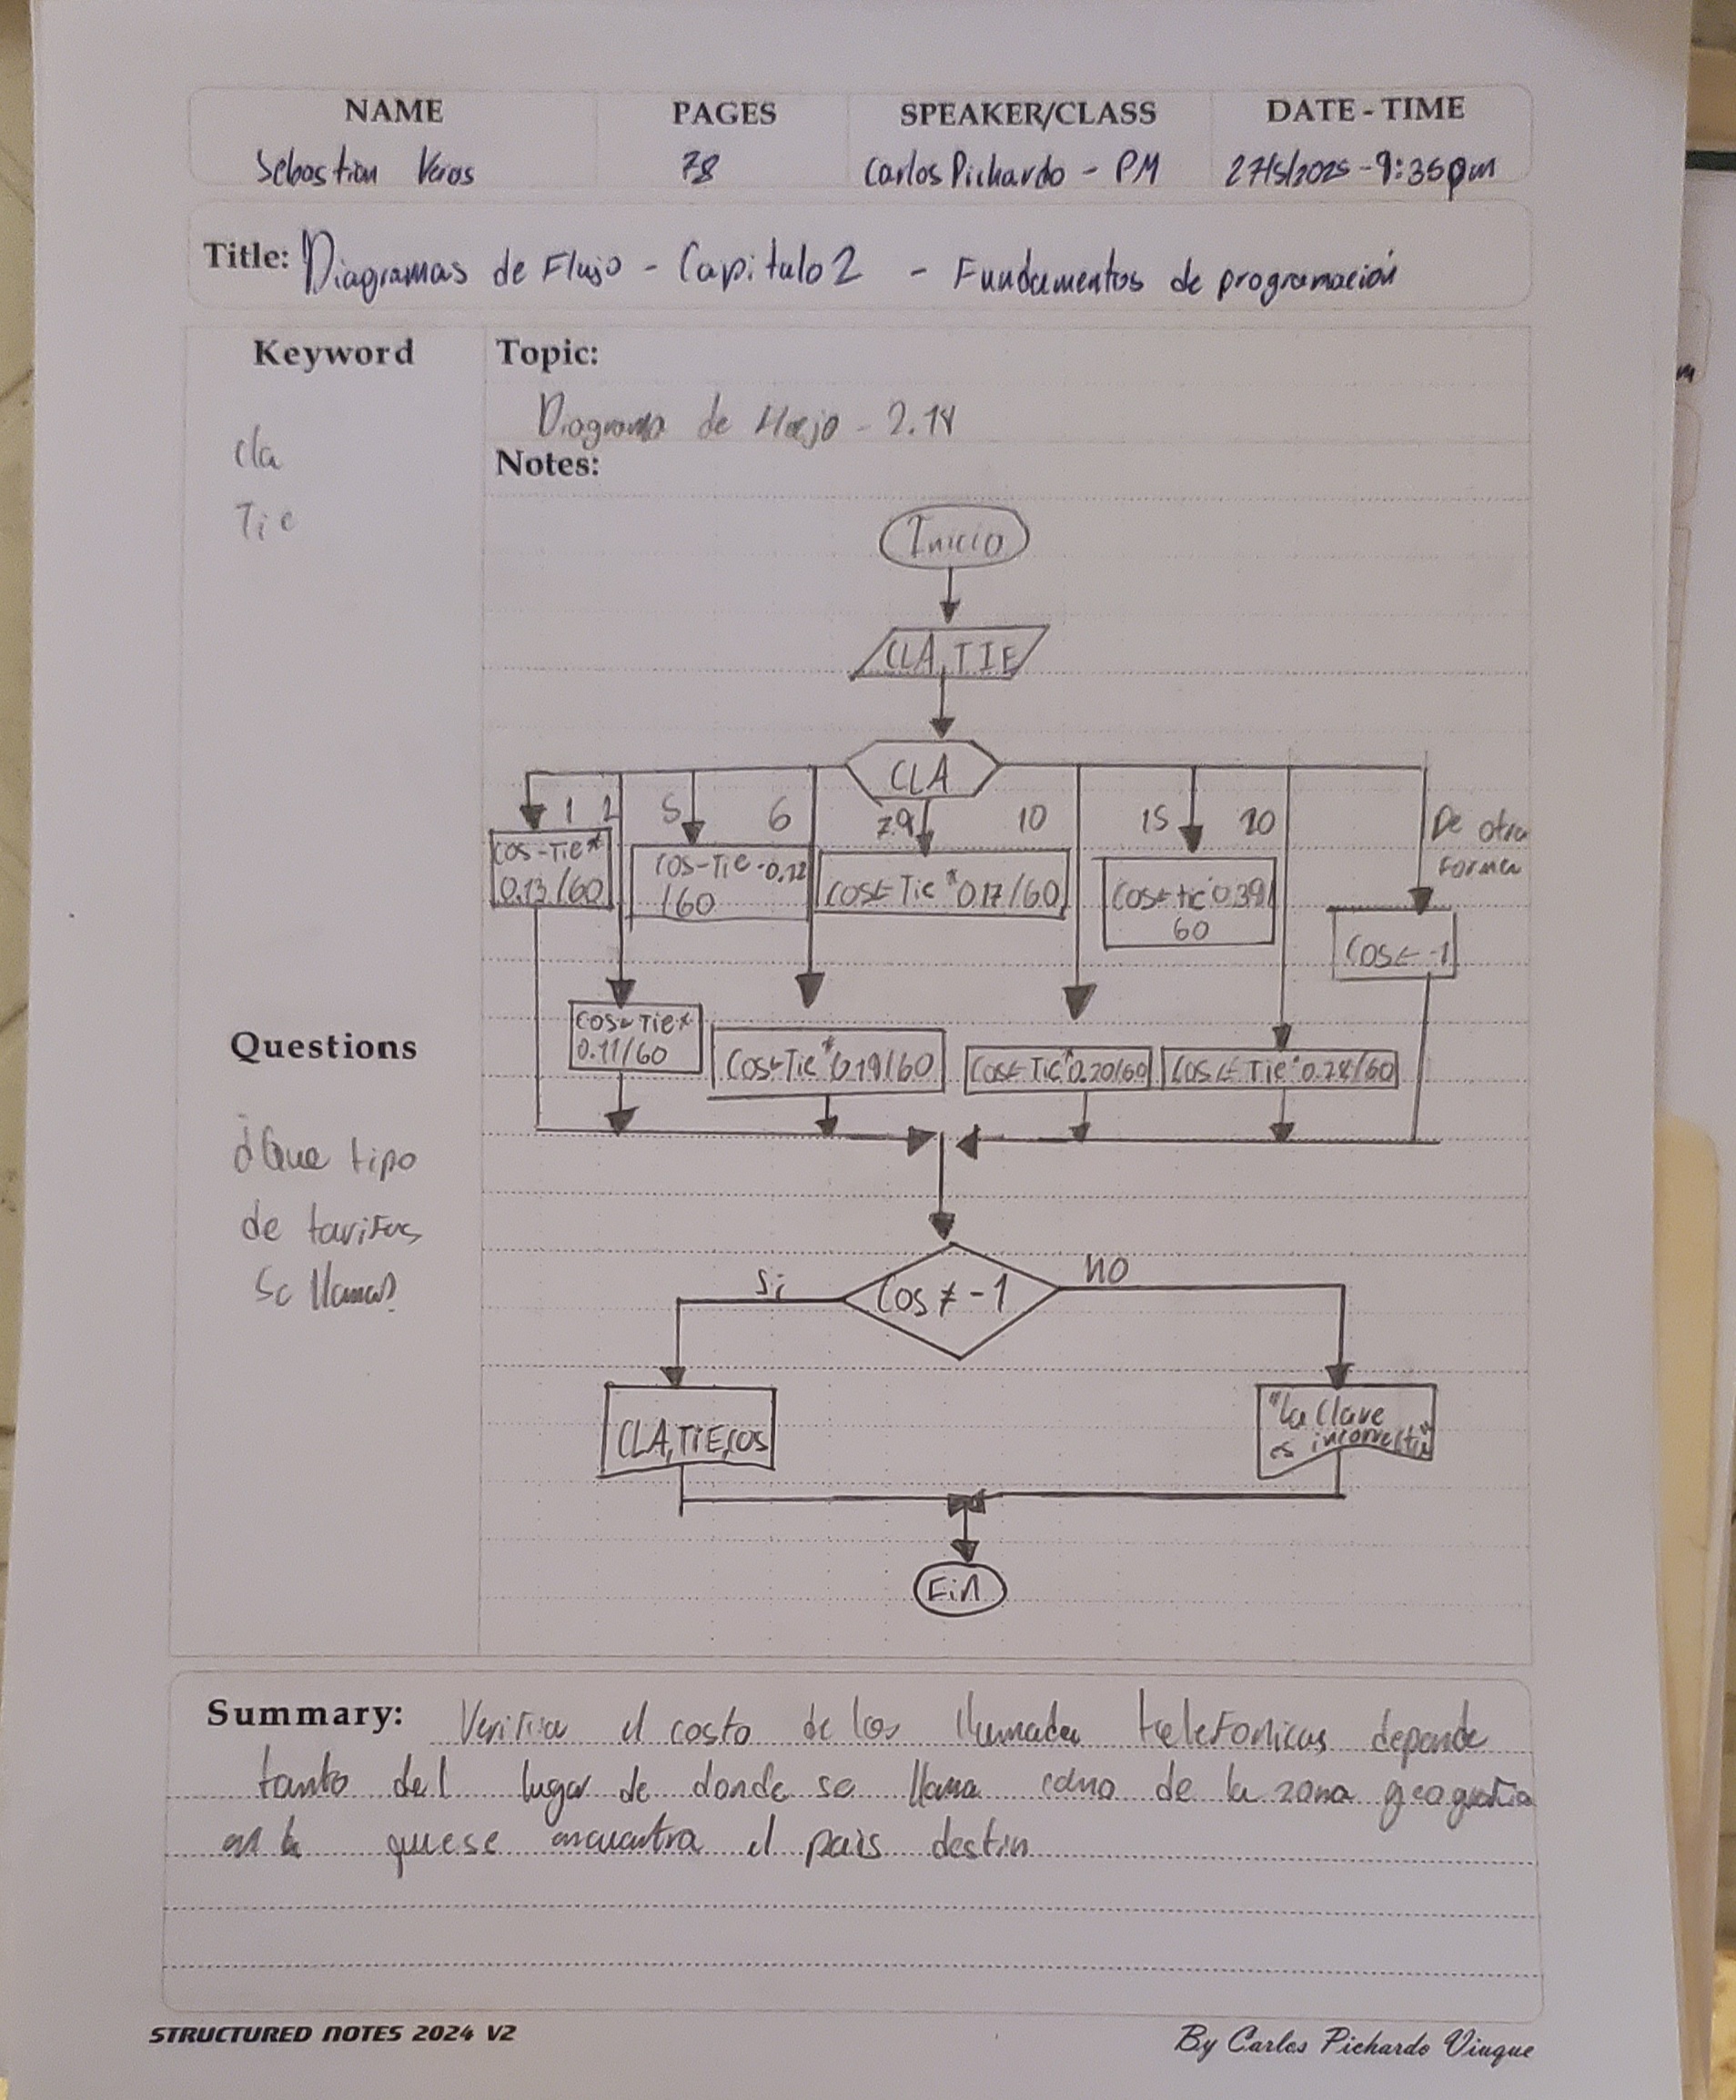 NAME PAGES SPEAKER/CLASS DATE - TIME
Sebastian Veras 78 Carlos Pichardo - PM 27/5/2025 - 9:36pm
Title: Diagramas de Flujo - Capitulo 2 - Fundamentos de programación
Keyword
Topic:
Diagrama de Flujo - 2.14
cla
Notes:
Tie
Inicio
CLA, TIE
CLA
1 2 5 6 7.9 10 15 20 De otra
forma
Cos-Tie*
0.13/60
Cos-Tie-0.22
/60
Cos← Tie*0.17/60
Cos← tie*0.39/
60
Cos← -1
Cos← Tie*
0.11/60
Cos←Tie*0.19/60
Cos← Tie*0.20/60
Cos← Tie*0.28/60
Questions
¿Que tipo
de tarifas
se llama?
Cos ≠ -1
Si
NO
CLA, TIE, COS
"La Clave
es incorrecta"
Fin
Summary: Verifica el costo de las llamadas telefonicas depende
tanto del lugar de donde se llama como de la zona geografia
en la que se encuentra el pais destin
STRUCTURED NOTES 2024 V2
By Carlos Pichardo Viuque